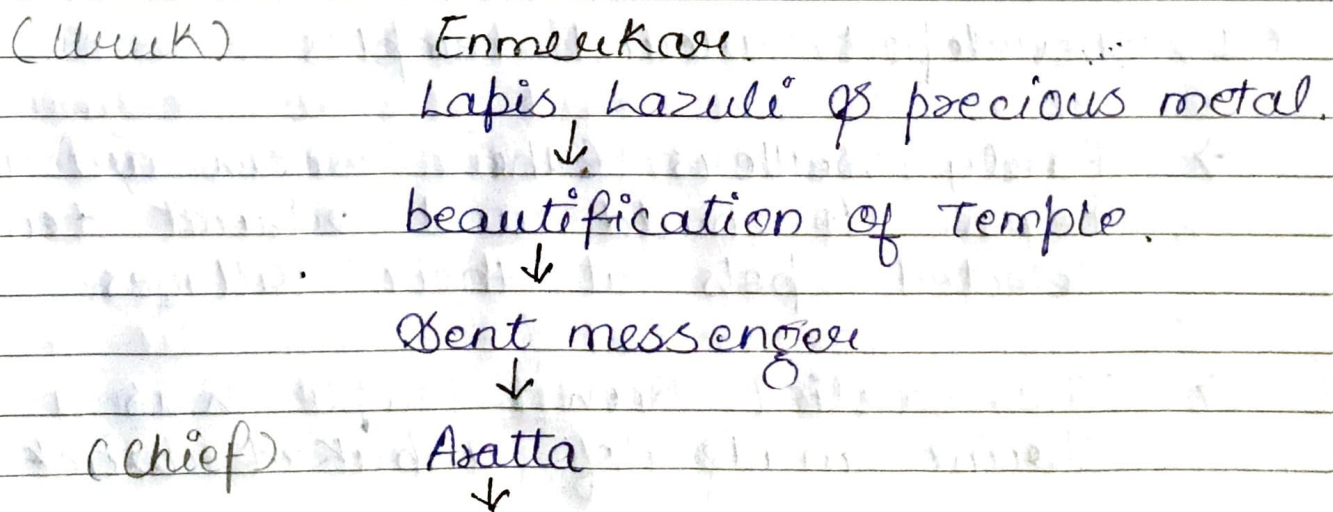 (Uruk) Enmerkar.
Lapis Lazuli & precious metal.
↓
beautification of Temple.
↓
Sent messenger
↓
(Chief) Aratta
↓